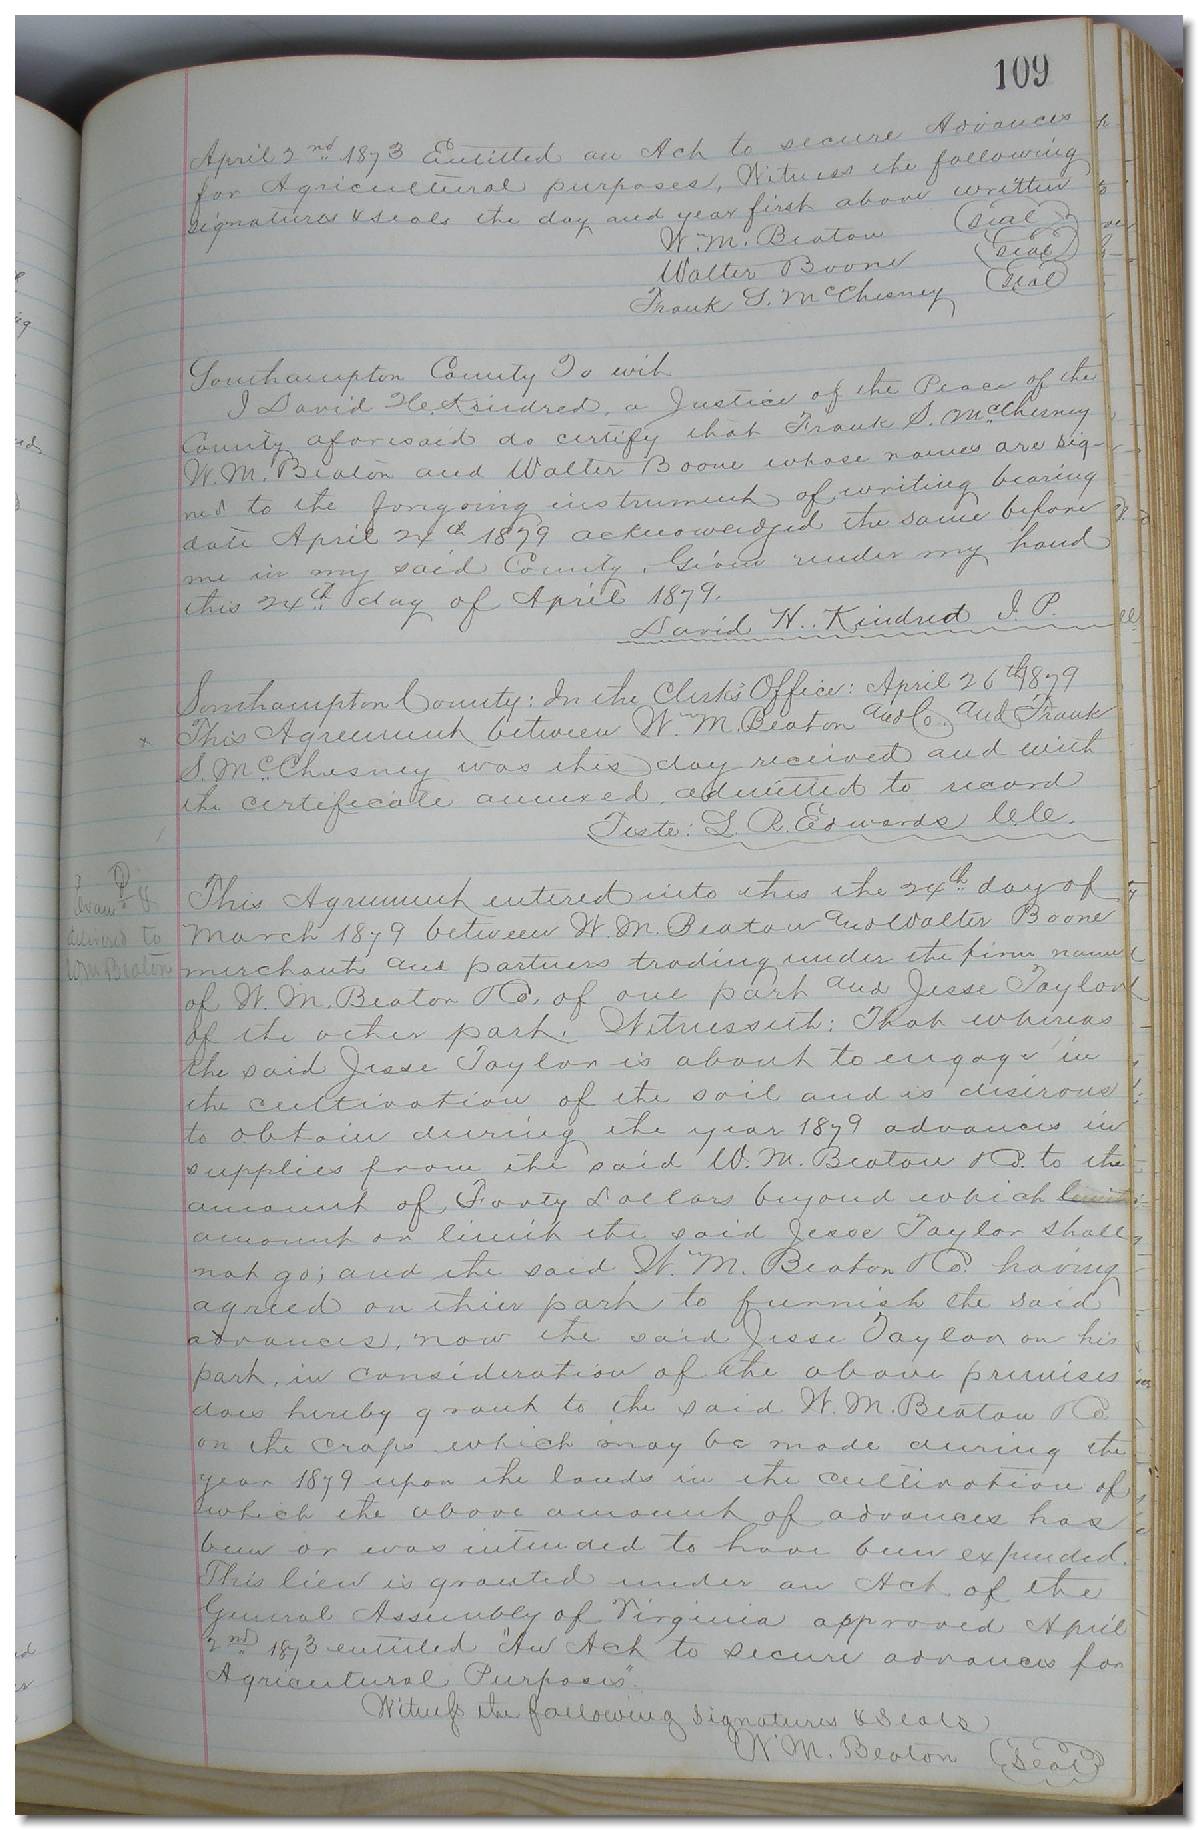 109
April 2nd 1873 Entitled an Act to secure Advances
for Agricultural purposes, Witness the following
signatures & seals the day and year first above written
Wm. M. Beaton (Seal)
Walter Boone (Seal)
Frank S. McChesney (Seal)
Southampton County To wit
I David H. Kindred, a Justice of the Peace of the
County aforesaid do certify that Frank S. McChesney
W. M. Beaton and Walter Boone whose names are sig-
ned to the foregoing instrument of writing bearing
date April 24th 1879 acknowledged the same before
me in my said County. Given under my hand
this 24th day of April 1879.
David H. Kindred J. P.
Southampton County: In the Clerk's Office: April 26th 1879
This Agreement between Wm M. Beaton and Co. and Frank
S. McChesney was this day received and with
the certificate annexed, admitted to record
Teste: L. R. Edwards C.C.
Exam'd &
delivered to
Wm Beaton
This Agreement entered into this the 24th day of
March 1879 between W. M. Beaton and Walter Boone
merchants and partners trading under the firm name
of W. M. Beaton & Co. of one part and Jesse Taylor
of the other part. Witnesseth: That whereas
the said Jesse Taylor is about to engage in
the cultivation of the soil and is desirous
to obtain during the year 1879 advances in
supplies from the said W. M. Beaton & Co. to the
amount of Forty Dollars beyond which limit
amount or limit the said Jesse Taylor shall
not go; and the said Wm. M. Beaton & Co. having
agreed on thier part to furnish the said
advances, now the said Jesse Taylor on his
part, in consideration of the above premises
does hereby grant to the said W. M. Beaton & Co.
on the crops which may be made during the
year 1879 upon the lands in the cultivation of
which the above amount of advances has
been or was intended to have been expended.
This lien is granted under an Act of the
General Assembly of Virginia approved April
2nd 1873 entitled "An Act to secure advances for
Agricultural Purposes".
Witness the following signatures & Seals
W M. Beaton (Seal)